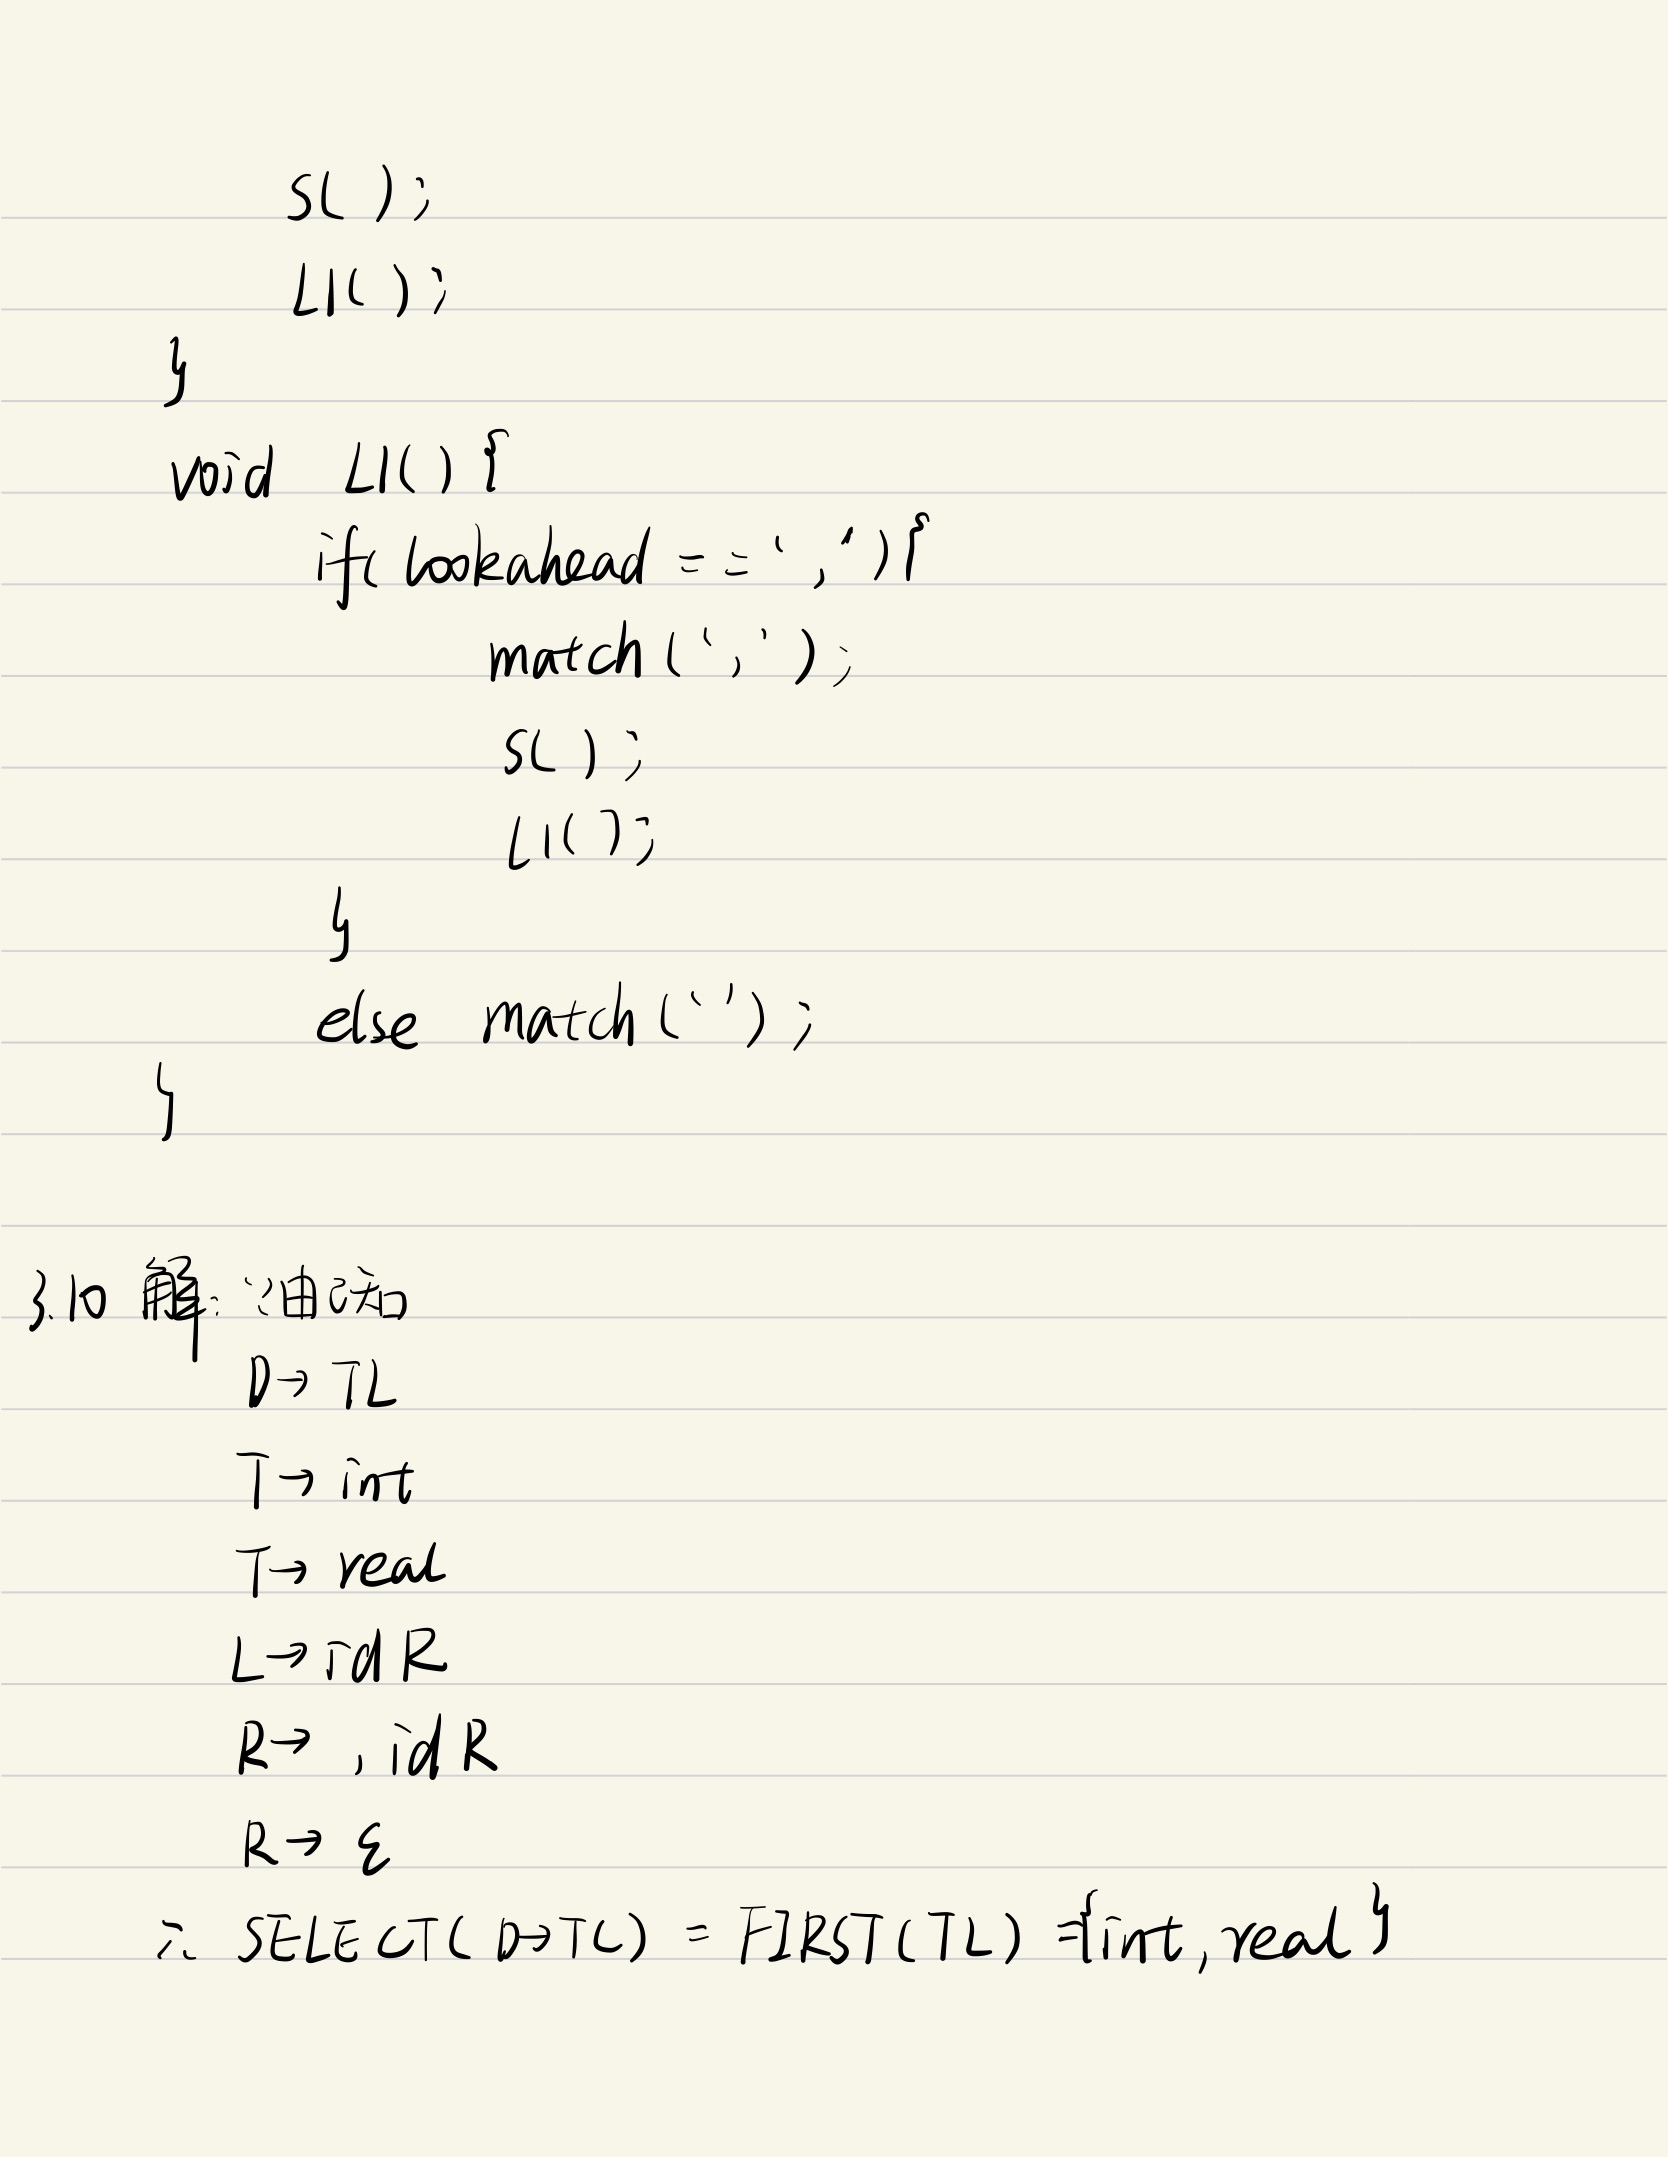 S( );
L1( );
}
void L1() {
if( lookahead == ','){
match(',');
S( );
L1( );
}
else match('');
}
3.10 解: ∵由已知
D→TL
T→ int
T→ real
L→idR
R→ ,idR
R→ ε
∴ SELECT( D→TL) = FIRST(TL) ={int, real}